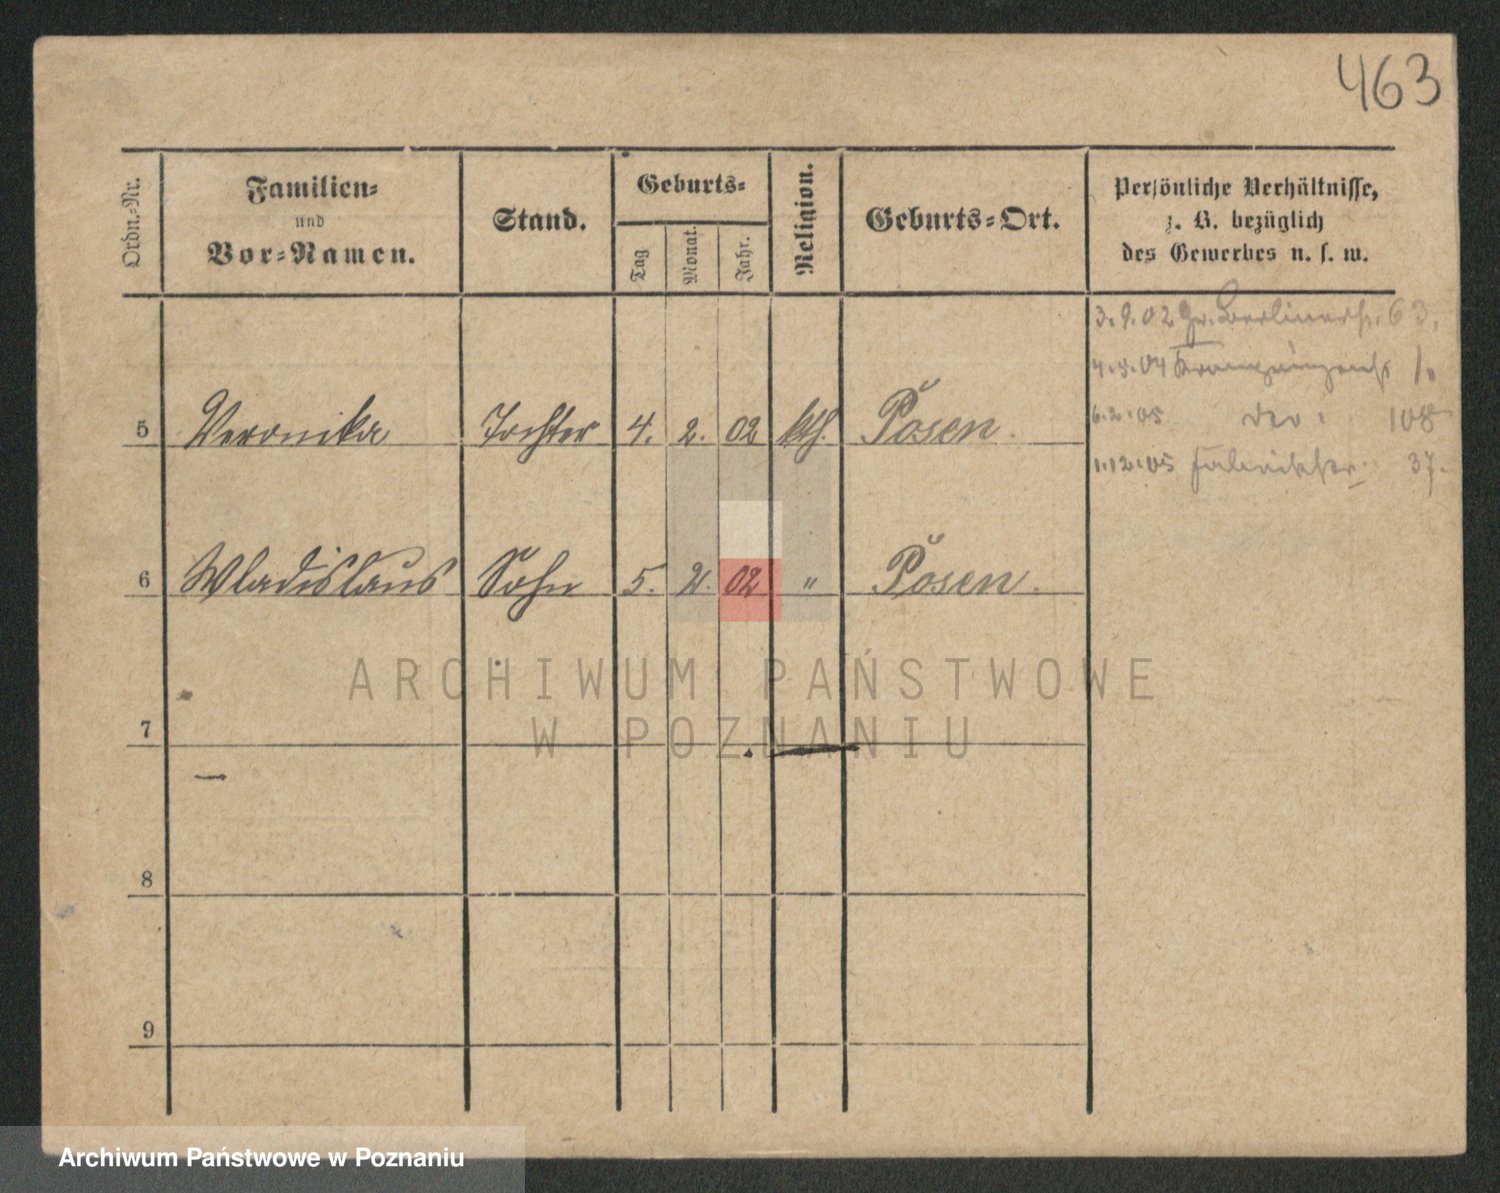 463
Ordn.-Nr.
Familien-
und
Vor-Namen.
Stand.
Geburts-
Tag
Monat.
Jahr.
Religion.
Geburts-Ort.
Persönliche Verhältnisse,
z. B. bezüglich
des Gewerbes u. s. w.
3.9.02 Gr. Berlinerstr. 63.
4.5.04 1.
5 Veronika Tochter 4. 2. 02 kth. Posen.
6.2.05 108
1.12.05 Fabrikstr. 37.
6 Wladislaus Sohn 5. 2. 02 " Posen.
ARCHIWUM PAŃSTWOWE
W POZNANIU
7
8
9
Archiwum Państwowe w Poznaniu